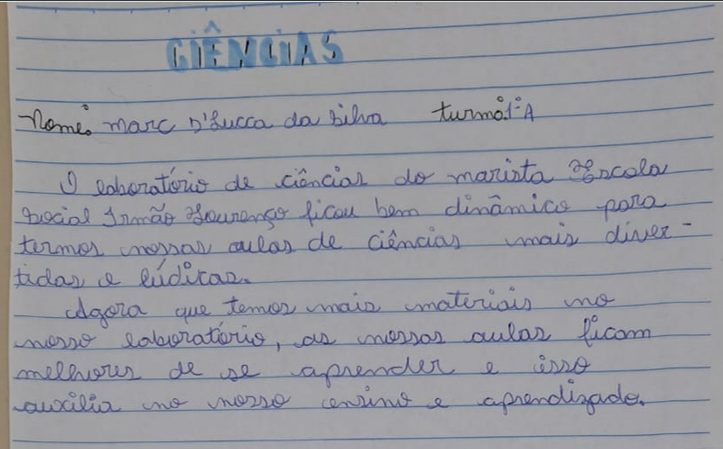 CIÊNCIAS
Nome: Marc D'Lucca da Silva turma: 1º A
O laboratório de ciências do marista Escola
Social Irmão Lourenço ficou bem dinâmico para
termos nossas aulas de ciências mais diver-
tidas e lúdicas.
Agora que temos mais materiais no
nosso laboratório, as nossas aulas ficam
melhores de se aprender e isso
auxilia no nosso ensino e aprendizado.